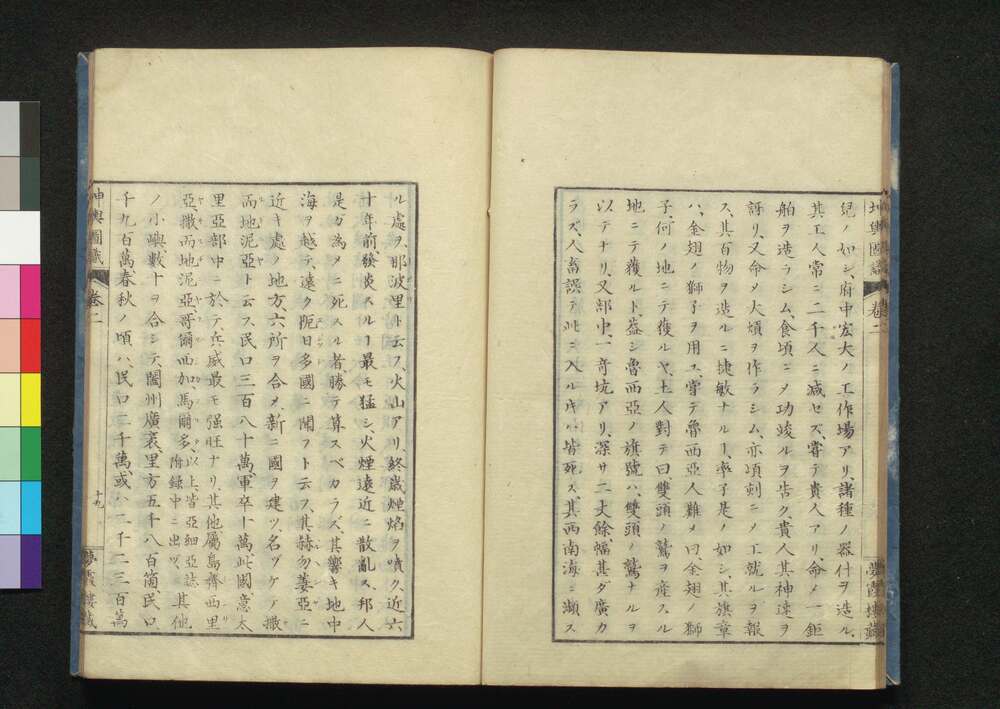 坤輿圖識
卷二
夢霞樓藏
絕ノ如シ、府中宏大ノ工作場アリ、諸種ノ器什ヲ造ル、
其工人常ニ二千人ニ減セズ、嘗テ貴人アリ、命メ一鉅
舶ヲ造ラシム、食頃ニメ功竣ルヲ告ク、貴人其神速ヲ
訝リ、又命メ大熕ヲ作ラシム、亦頃刻ニノ工就ルヲ報
ス、其百物ヲ造ルニ捷敏ナルヿ、率子是ノ如シ、其旗章
ハ、金翅ノ獅子ヲ用ユ、嘗テ魯西亞人難メ曰、金翅ノ獅
子、何ノ地ニテ獲ルヤ、土人對テ曰雙頭ノ鷲ヲ産スル
地ニテ獲ルト、蓋シ魯西亞ノ旗號ハ、雙頭ノ鷲ナルヲ
以テナリ、又部中、一奇坑アリ、深サ二丈餘幅甚ダ廣カ
ラズ、人畜誤テ此ニ入ル片ハ皆死ス、其西南海ニ瀕ス
ル處ヲ、那波里ト云フ、火山アリ、終歳煙焰ヲ噴ク、近六
十年前發炎スルヿ最モ猛シ、火煙遠近ニ散亂ス、邦人
是ガ為メニ死スル者勝テ算スベカラス、其響キ地中
海ヲ越テ、遠ク阨日多國ニ聞フト云ス、其赫勿萋亞ニ
近キ處ノ地方、六所ヲ合メ、新ニ國ヲ建ツ、名ヅケテ撒
而地泥亞ト云フ、民口三百八十萬、軍卒十萬、此國、意太
里亞部中ニ於テ、兵威最モ强旺ナリ、其他屬島齊西里
亞撒而地泥亞哥爾西加、馬爾多、以上皆亞細亞誌附録中ニ出ツ、其他
ノ小嶼數十ヲ合シテ、闔州廣袤、里方五千八百箇、民口
千九百萬春秋ノ頃ハ、民口二千萬、或ハ二千二三百萬
坤輿圖識
卷二
十九
夢霞樓藏